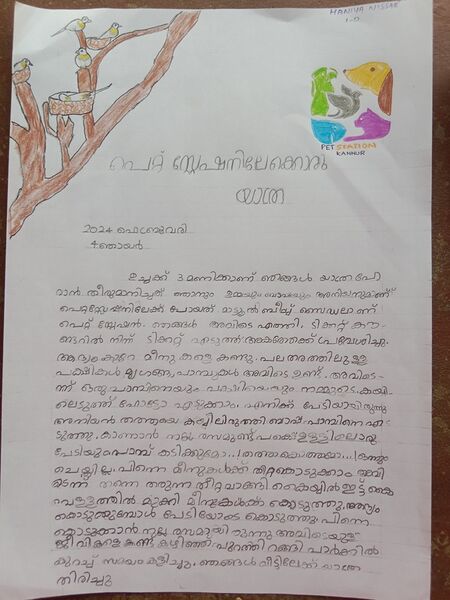 HANIYA NISSAR
1-D
PET STATION
KANNUR
പെറ്റ് സ്റ്റേഷനിലേക്കൊരു
യാത്ര
2024 ഫെബ്രുവരി
4 ഞായർ
ഉച്ചക്ക് 3 മണിക്കാണ് ഞങ്ങൾ യാത്ര പോ
വാൻ തീരുമാനിച്ചത് ഞാനും ഉമ്മയും ഉപ്പയും അനിയനുമാണ്
പെറ്റ്സ്റ്റേഷനിലേക്ക് പോയത് മാട്ടൂൽ ബീച്ച് സൈഡലാണ്
പെറ്റ് സ്റ്റേഷൻ. ഞങ്ങൾ അവിടെ എത്തി. ടിക്കറ്റ് കൗ
ണ്ടറിൽ നിന്ന് ടിക്കറ്റ് എടുത്ത് അകത്തേക്ക് പ്രവേശിച്ചു.
ആദ്യം കുറേ മീനുകളെ കണ്ടു. പല തരത്തിലുള്ള
പക്ഷികൾ മൃഗങ്ങൾ, പാമ്പുകൾ അവിടെ ഉണ്ട്. അവിടെ
ന്ന് ഒരു പാമ്പിനെയും പക്ഷിയെയും നമ്മുടെ കയ്യി
ലെടുത്ത് ഫോട്ടോ എടുക്കാം. എനിക്ക് പേടിയായിരുന്നു
അനിയൻ തത്തയെ കയ്യിലിരുത്തി പാമ്പിനെ എ
ടുത്തു. കാണാൻ നല്ല രസമുണ്ട് പക്ഷെ ഉള്ളിലൊരു
പേടിയും പാമ്പ് കടിക്കുമോ..! ഒന്നും
ചെയ്തില്ല. പിന്നെ മീനുകൾക്ക് തീറ്റകൊടുക്കാം അവി
ടെന്ന് തന്നെ തരുന്ന തീറ്റ വാങ്ങി കൈയ്യിൽ ഇട്ട് കൈ
വെള്ളത്തിൽ മുക്കി മീനുകൾക്ക് കൊടുത്തു. ആദ്യം
കൊടുക്കുമ്പോൾ പേടിയോടെ കൊടുത്തു. പിന്നെ
കൊടുക്കാൻ നല്ല രസമായിരുന്നു അവിടെയുള്ള
ജീവികളെ കണ്ട് കഴിഞ്ഞ് പുറത്തിറങ്ങി പാർക്കിൽ
കുറച്ച് സമയം കളിച്ചു. ഞങ്ങൾ വീട്ടിലേക്ക് യാത്ര
തിരിച്ചു